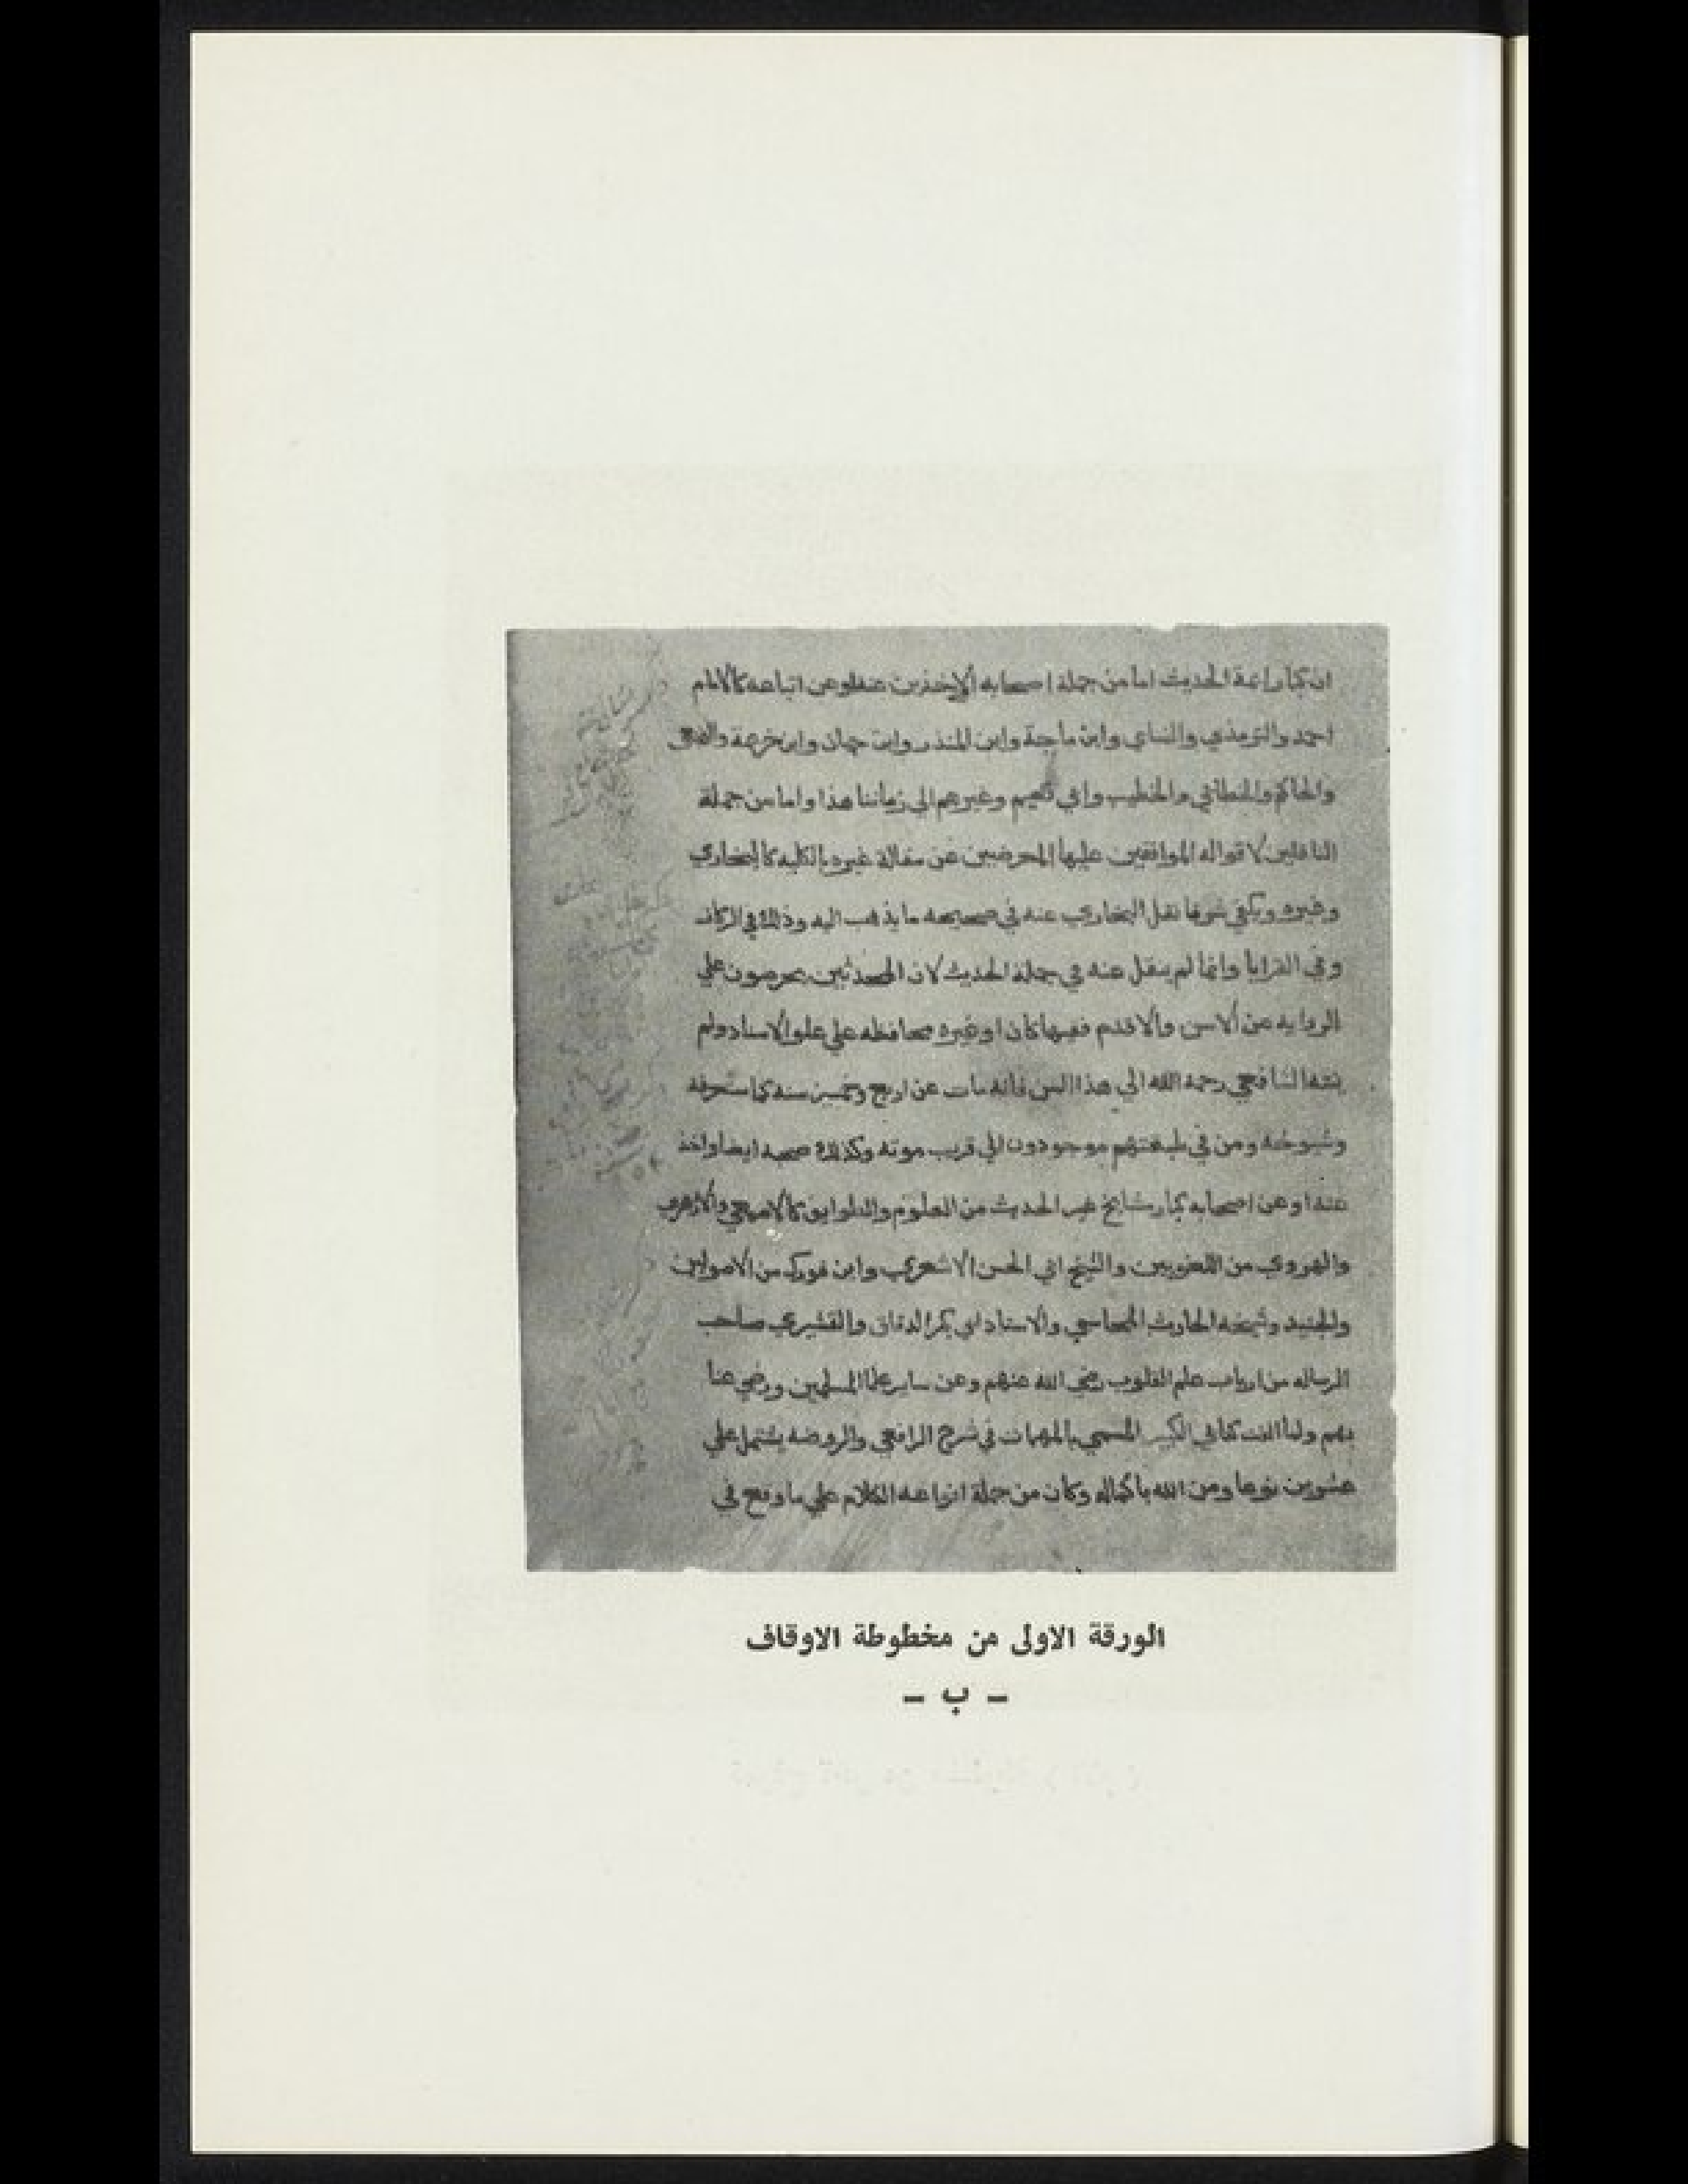 ان كبار ائمة الحديث اما من جملة اصحابه الاخذين عنه او عن اتباعه كالامام
احمد والترمذي والنساي وابن ماجة وابن المنذر وابن حبان وابن خزيمة والبيهقي
والحاكم والخطابي والخطيب وابي نعيم وغيرهم الي زماننا هذا واما من جملة
الناقلين لاقواله الموافقين عليها المعرضين عن مقالة غيره بالكليه كالبخاري
وغيره ويكفي شرفا نقل البخاري عنه في صحيحه ما يذهب اليه وذلك في الركاز
وفي العرايا وانما لم ينقل عنه في جملة الحديث لان المحدثين يحرصون علي
الروايه عن الاسن والاقدم فقيها كان او غيره محافظه علي علو الاسناد ولم
ينته الشافعي رحمه الله الي هذا السن فانه مات عن اربع وخمسين سنه كما ستعرفه
وشيوخه ومن في طبقتهم موجودون الي قريب موته وكذلك صحبه ايضا واخذ
عنه او عن اصحابه كبار مشايخ غير الحديث من العلوم والطوايف كالاصمعي والازهري
والهروي من اللغويين والشيخ ابي الحسن الاشعري وابن فورك من الاصوليين
والجنيد وشيخه الحارث المحاسبي والاستاد ابي بكر الدقاق والقشيري صاحب
الرساله من ارباب علم القلوب رضي الله عنهم وعن ساير علما المسلمين ورضي عنا
بهم ولما الفت كتابي الكبير المسمي بالمهمات في شرح الرافعي والروضه يشتمل علي
عشرين نوعا ومن الله باكماله وكان من جملة انواعه الكلام علي ما وقع في
الورقة الاولى من مخطوطة الاوقاف
ـ ب ـ